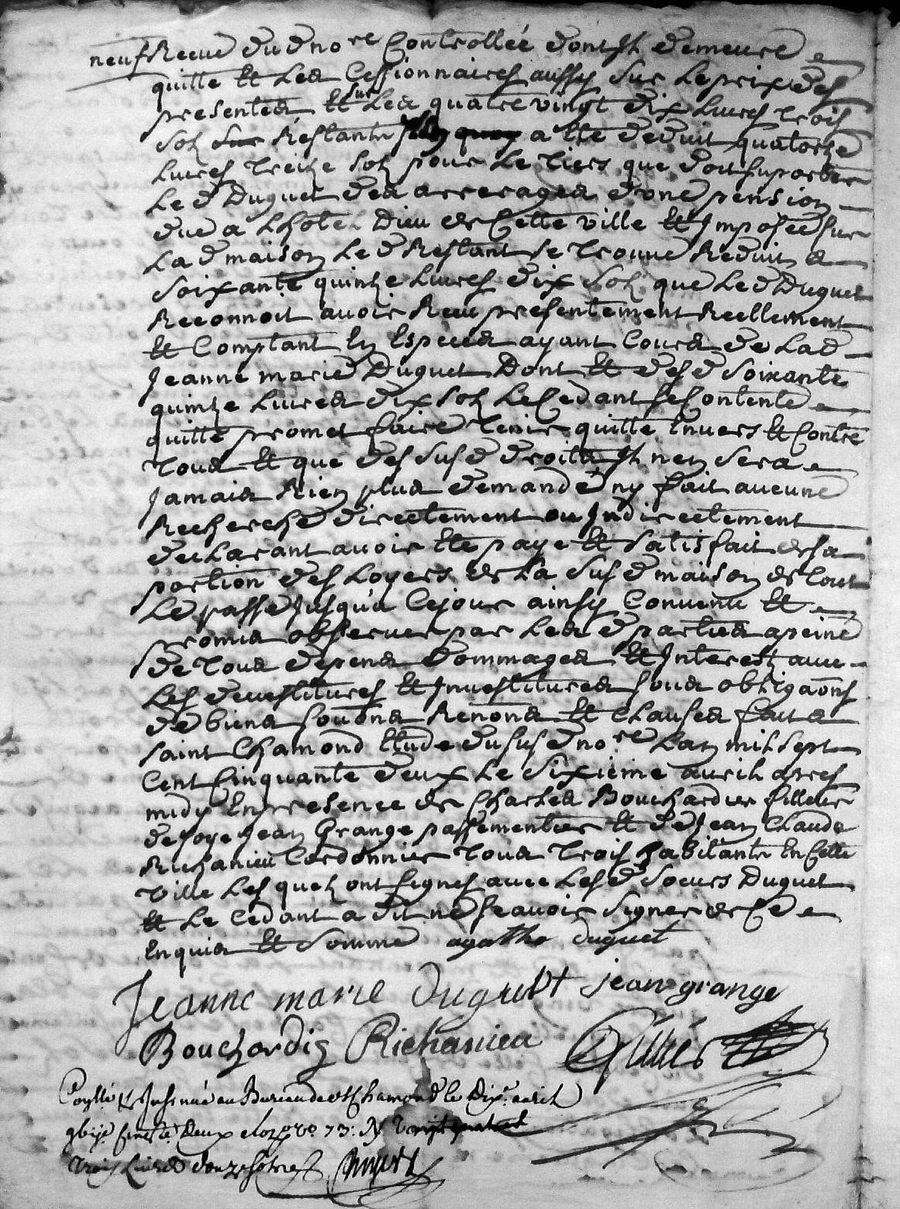 neuf Receu du d no.re Controllée dont Il demeure
quitte et Les Cessionnaires aussy sur Le prix des
presentes et sur Les quatre vingt dix Livres trois
Solz Restants a été deduit quatorze
Livres treize Solz pour Le tiers que doit suporter
Le d Duguet des arrerages d'une pension
due a Lhotel Dieu de Cette ville et Imposée sur
La d maison Le d Restant se trouve Reduit a
Soixante quinze Livres dix Solz que Le d Duguet
Reconnoit avoir Receu presentement Reellement
et Comptant En Especes ayant Cours de Lad
Jeanne marie Duguet Dont et des d Soixante
quinze Livres dix Solz Le Cedant se Contente
quitte promet faire tenir quitte Envers et Contre
tous et que des sus d droits Il n'en sera
Jamais Rien plus demandé ny fait aucune
Recherche directement ou Indirectement
declarant avoir été payé et satisfait de sa
portion des Loyers de La sus d maison de tout
Le passé Jusqu'a Cejour ainsy Convenu et
promis observer par Les d parties a peine
de tous depens dommages et Interest avec
Les devestitures et Investitures sous obligaôns
de biens soûmons Renôns et Clauses fait a
Saint Chamond Etude du sus d no.re Lan mil sept
Cent Cinquante deux Le Sixieme avril apres
midy En presence de Charles Bouchardier filleur
de soye Jean Grange passementier et de Jean Claude
Richanieu Cordonnier tous trois habitants En Cette
Ville Lesquelz ont signés avec Lesd Soeurs Duguet
et Le Cedant a dit ne scavoir signer de Ce
Enquis et sommé agathe duguet
Jeanne marie duguet jean grange
Bouchardie Richanieu
Coll et Insinué au Bureau de St Chamond le Dix avril
deux
trois Livres douze sols